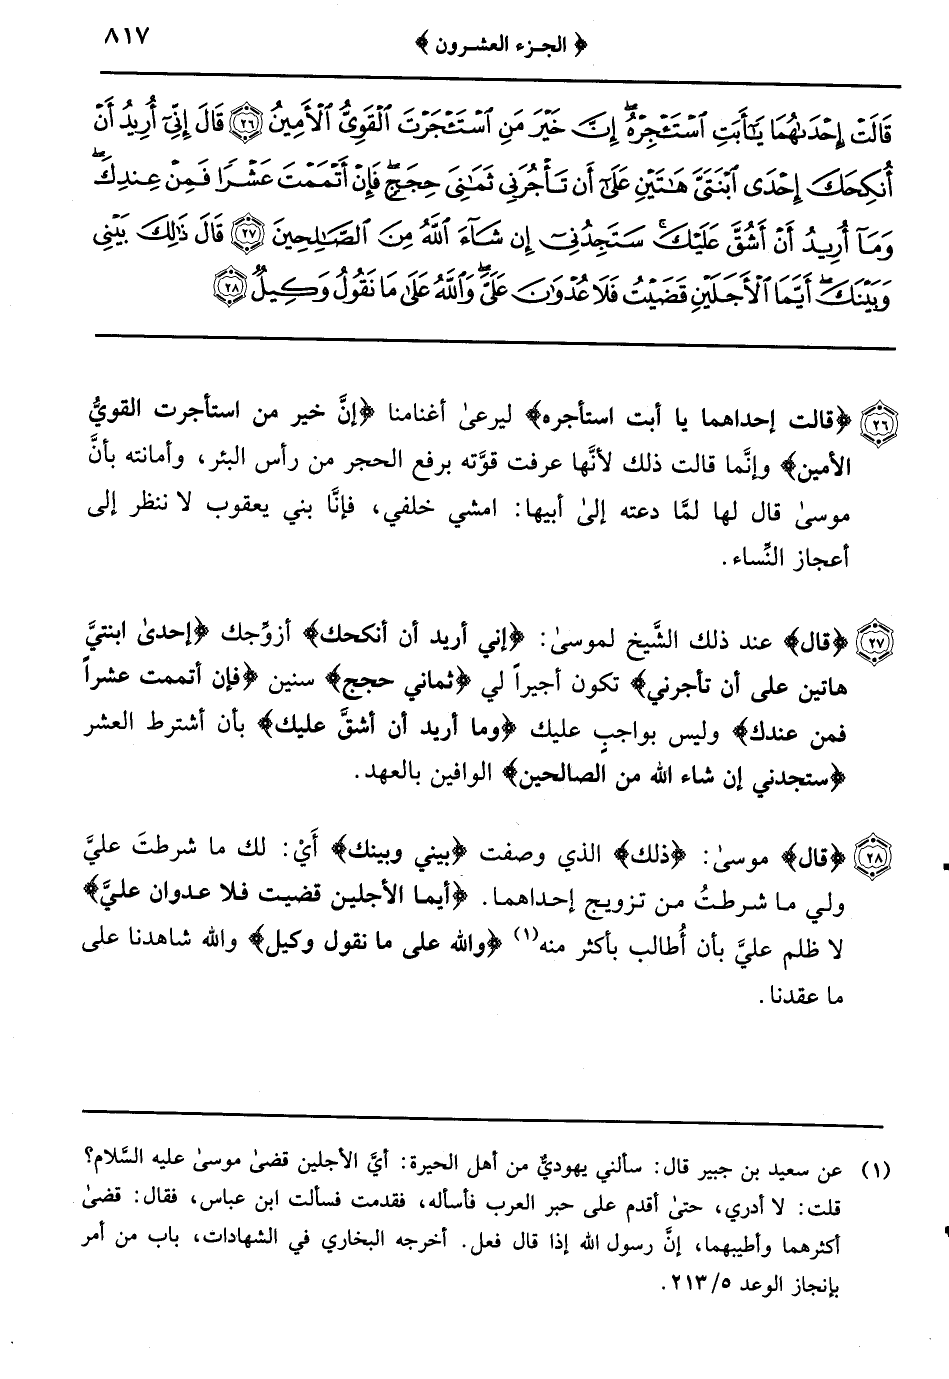 ﴿ الجزء العشرون ﴾
٨١٧
قَالَتْ إِحْدَىٰهُمَا يَٰٓأَبَتِ ٱسْتَـْٔجِرْهُ ۖ إِنَّ خَيْرَ مَنِ ٱسْتَـْٔجَرْتَ ٱلْقَوِىُّ ٱلْأَمِينُ ٢٦ قَالَ إِنِّىٓ أُرِيدُ أَنْ
أُنكِحَكَ إِحْدَى ٱبْنَتَىَّ هَٰتَيْنِ عَلَىٰٓ أَن تَأْجُرَنِى ثَمَٰنِىَ حِجَجٍ ۖ فَإِنْ أَتْمَمْتَ عَشْرًا فَمِنْ عِندِكَ ۖ
وَمَآ أُرِيدُ أَنْ أَشُقَّ عَلَيْكَ ۚ سَتَجِدُنِىٓ إِن شَآءَ ٱللَّهُ مِنَ ٱلصَّٰلِحِينَ ٢٧ قَالَ ذَٰلِكَ بَيْنِى
وَبَيْنَكَ ۖ أَيَّمَا ٱلْأَجَلَيْنِ قَضَيْتُ فَلَا عُدْوَٰنَ عَلَىَّ ۖ وَٱللَّهُ عَلَىٰ مَا نَقُولُ وَكِيلٌ ٢٨
٢٦ ﴿قالت إحداهما يا أبت استأجره﴾ ليرعىٰ أغنامنا ﴿إنَّ خير من استأجرت القويُّ
الأمين﴾ وإنَّما قالت ذلك لأنَّها عرفت قوَّته برفع الحجر من رأس البئر، وأمانته بأنَّ
موسىٰ قال لها لمَّا دعته إلىٰ أبيها: امشي خلفي، فإنَّا بني يعقوب لا ننظر إلى
أعجاز النِّساء.
٢٧ ﴿قال﴾ عند ذلك الشَّيخ لموسىٰ: ﴿إني أريد أن أنكحك﴾ أزوِّجك ﴿إحدىٰ ابنتيَّ
هاتين على أن تأجرني﴾ تكون أجيراً لي ﴿ثماني حجج﴾ سنين ﴿فإن أتممت عشراً
فمن عندك﴾ وليس بواجبٍ عليك ﴿وما أريد أن أشقَّ عليك﴾ بأن أشترط العشر
﴿ستجدني إن شاء الله من الصالحين﴾ الوافين بالعهد.
٢٨ ﴿قال﴾ موسىٰ: ﴿ذلك﴾ الذي وصفت ﴿بيني وبينك﴾ أَيْ: لك ما شرطتَ عليَّ
ولي ما شرطتُ من تزويج إحداهما. ﴿أيما الأجلين قضيت فلا عدوان عليَّ﴾
لا ظلم عليَّ بأن أُطالب بأكثر منه(١) ﴿والله على ما نقول وكيل﴾ والله شاهدنا على
ما عقدنا.
(١) عن سعيد بن جبير قال: سألني يهوديٌّ من أهل الحيرة: أيَّ الأجلين قضىٰ موسىٰ عليه السَّلام؟
قلت: لا أدري، حتىٰ أقدم على حبر العرب فأسأله، فقدمت فسألت ابن عباس، فقال: قضىٰ
أكثرهما وأطيبهما، إنَّ رسول الله إذا قال فعل. أخرجه البخاري في الشهادات، باب من أمر
بإنجاز الوعد ٢١٣/٥.